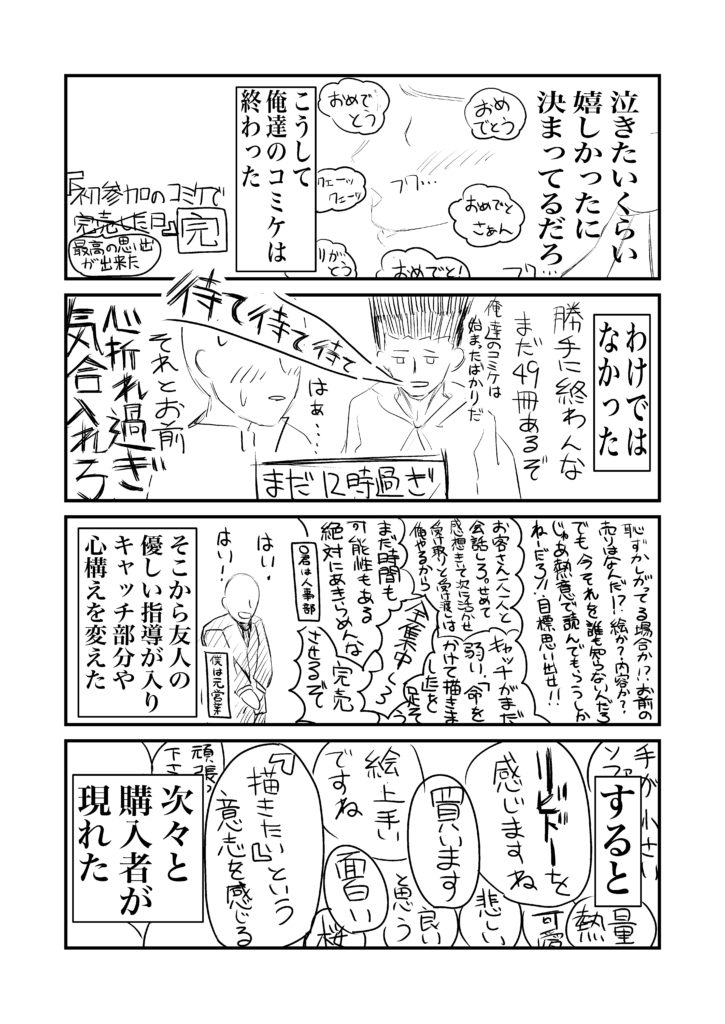 泣きたいくらい
嬉しかったに
決まってるだろ
おめ
でとう
おめでと
さぁん
おめでと!
フワ…
フワ…
おめで
とう
ウェーッ
ウェーッ
りがと
とう
こうして
俺達のコミケは
終わった
『初参加のコミケで
完売した日』
完
最高の思い出
が出来た
わけでは
なかった
勝手に終わんな
まだ49冊あるぞ
俺達のコミケは
始まったばかりだ
待て待て待て
はぁ…
まだ12時過ぎ
それとお前
心折れ過ぎ
気合入れろ
恥ずかしがってる場合か!?お前の
売りはなんだ!?絵か?内容か?
でも、今それを誰も知らないんだろ
じゃあ熱意で読んでもらうしか
ねーだろ!!目標思い出せ!!
お客さん一人一人と
会話しろ。せめて
感想きいて次に活かせ
受け取りと受け渡しは
俺やるから
全集中しろ
キャッチがまだ
弱い、「命を
かけて描きま
した」を
足そう
まだ時間も
可能性もある
絶対にあきらめんな
完売
させるぞ
○君は人事部
はい。
はい!
僕は元営業
そこから友人の
優しい指導が入り
キャッチ部分や
心構えを変えた
すると
手が小さい
リビドーを
感じますね
買います
絵上手い
ですね
『描きたい』という
意志を感じる
面白い
と思う
良い
悲しい
可愛
熱量
桜
頑張っ
下さ
次々と
購入者が
現れた